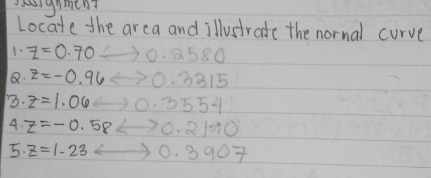 Assignment
Locate the area and illustrate the normal curve
1. z=0.70 ⟷ 0.2580
2. z=-0.96 ⟷ 0.3315
3. z=1.06 ⟷ 0.3554
4. z=-0.58 ⟷ 0.2190
5. z=1.23 ⟷ 0.3907